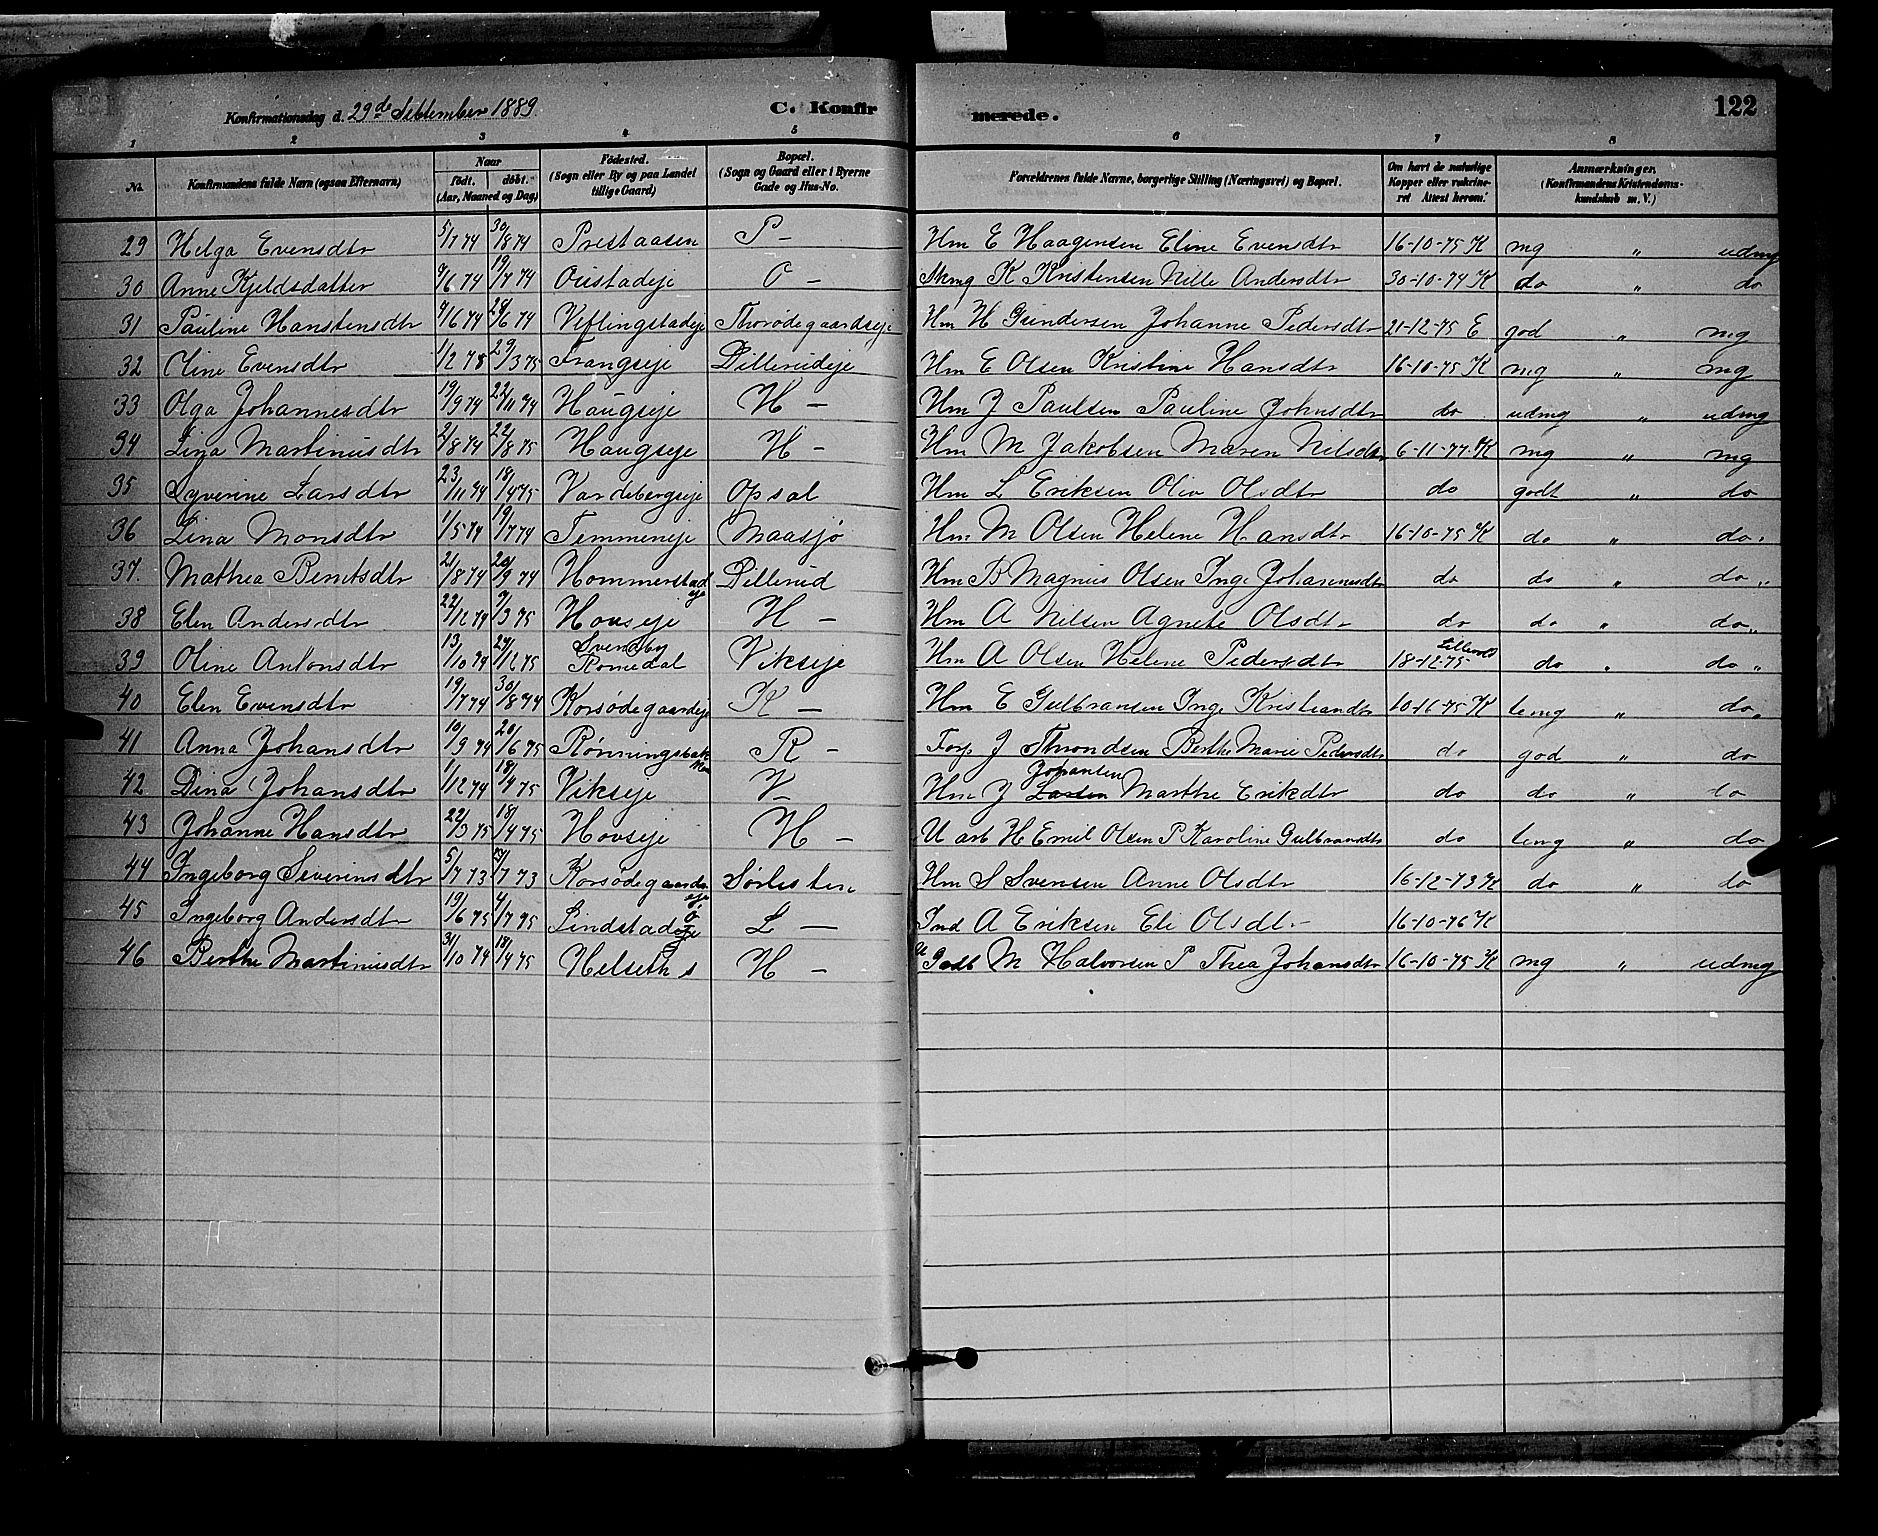 Konfirmationsdag d. 29de September 1889. C. Konfirmerede. 122
1 2 3 4 5 6 7 8
No. Konfirmandens fulde Navn (ogsaa Efternavn) Naar født. døbt. (Aar, Maaned og Dag) Fødested. (Sogn eller By og paa Landet tillige Gaard) Bopæl. (Sogn og Gaard eller i Byerne Gade og Hus-No. Forældrenes fulde Navne, borgerlige Stilling (Næringsvei) og Bopæl. Om havt de naturlige Kopper eller vakcineret. Attest herom. Anmærkninger. (Konfirmandens Kristendomskundskab m. V.)
29 Helga Evensdtr 5/7 74 30/8 74 Prestaasen P - Hm E Haagensen Eline Evensdtr 16-10-75 K mg " udmg
30 Anne Kjeldsdatter 9/6 74 19/7 74 Oustadeje O - Skmg K Kristensen Nille Andersdtr 30-10-74 K do " do
31 Pauline Hanstensdtr 9/6 74 28/6 74 Viflingstadeje Thorødegaardseje Hm H Gundersen Johanne Pedersdtr 21-12-75 E god " mg
32 Oline Evensdtr 1/2 75 29/3 75 Frangseje Dillerudeje Hm E Olsen Kristine Hansdtr 16-10-75 K mg " mg
33 Olga Johannesdtr 19/9 74 22/11 74 Haugseje H - Hm J Paulsen Pauline Johnsdtr do udmg " udmg
34 Lina Martinusdtr 21/8 74 22/8 75 Haugseje H - Hm M Jakobsen Maren Nilsdtr 6-11-77 K mg " mg
35 Syverine Larsdtr 23/11 74 18/4 75 Vardebergseje Opsal Hm L Eriksen Oliv Olsdtr do godt " do
36 Lina Monsdtr 1/5 74 19/7 74 Temmeneje Maasjø Hm M Olsen Helene Hansdtr 16-10-75 K do " do.
37. Mathea Berntsdtr 21/8 74 20/9 74 Hommerstadeje Dillerud Hm B Magnus Olsen Inge Johannesdtr do do " do "
38 Elen Andersdtr 22/12 74 7/3 75 Hovseje H - Hm A Nilsen Agnete Olsdtr do do " do "
39 Oline Antonsdtr 13/10 74 24/12 75 Svensby Romedal Vikseje Hm A Olsen Helene Pedersdtr 18-12-75 do " do "
40 Elen Evensdtr 19/7 74 30/8 74 Korsødegaardeje K - Hm E Gulbransen Inge Kristiandtr 10-16-75 K temg " do "
41 Anna Johansdtr 10/9 74 20/6 75 Rønningsbakken R - Forp J Throndsen Berthe Marie Pedersdtr do god " do
42 Dina Johansdtr 1/12 74 18/4 75 Vikseje V Hm J Larsen Johansen Marthe Erikdtr do do " do
43 Johanne Hansdtr 22/3 75 18/4 75 Hovseje H - U arb H Emil Olsen P Karoline Gulbrandtr do temg " do
44 Ingeborg Severinsdtr 5/7 73 /7 73 Korsødegaardseje Sørlisten Hm S Svensen Anne Olsdtr 16-12-73 K do " do
45 Ingeborg Andersdtr 19/6 75 4/7 75 Lindstad ø L - Ind A Eriksen Eli Olsdt. 16-10-76 K
46 Berthe Martinusdtr 31/10 74 18/4 75 Helseth s H - U Godb M Halvorsen P Thea Johansdtr 16-10-75 K mg " udmg